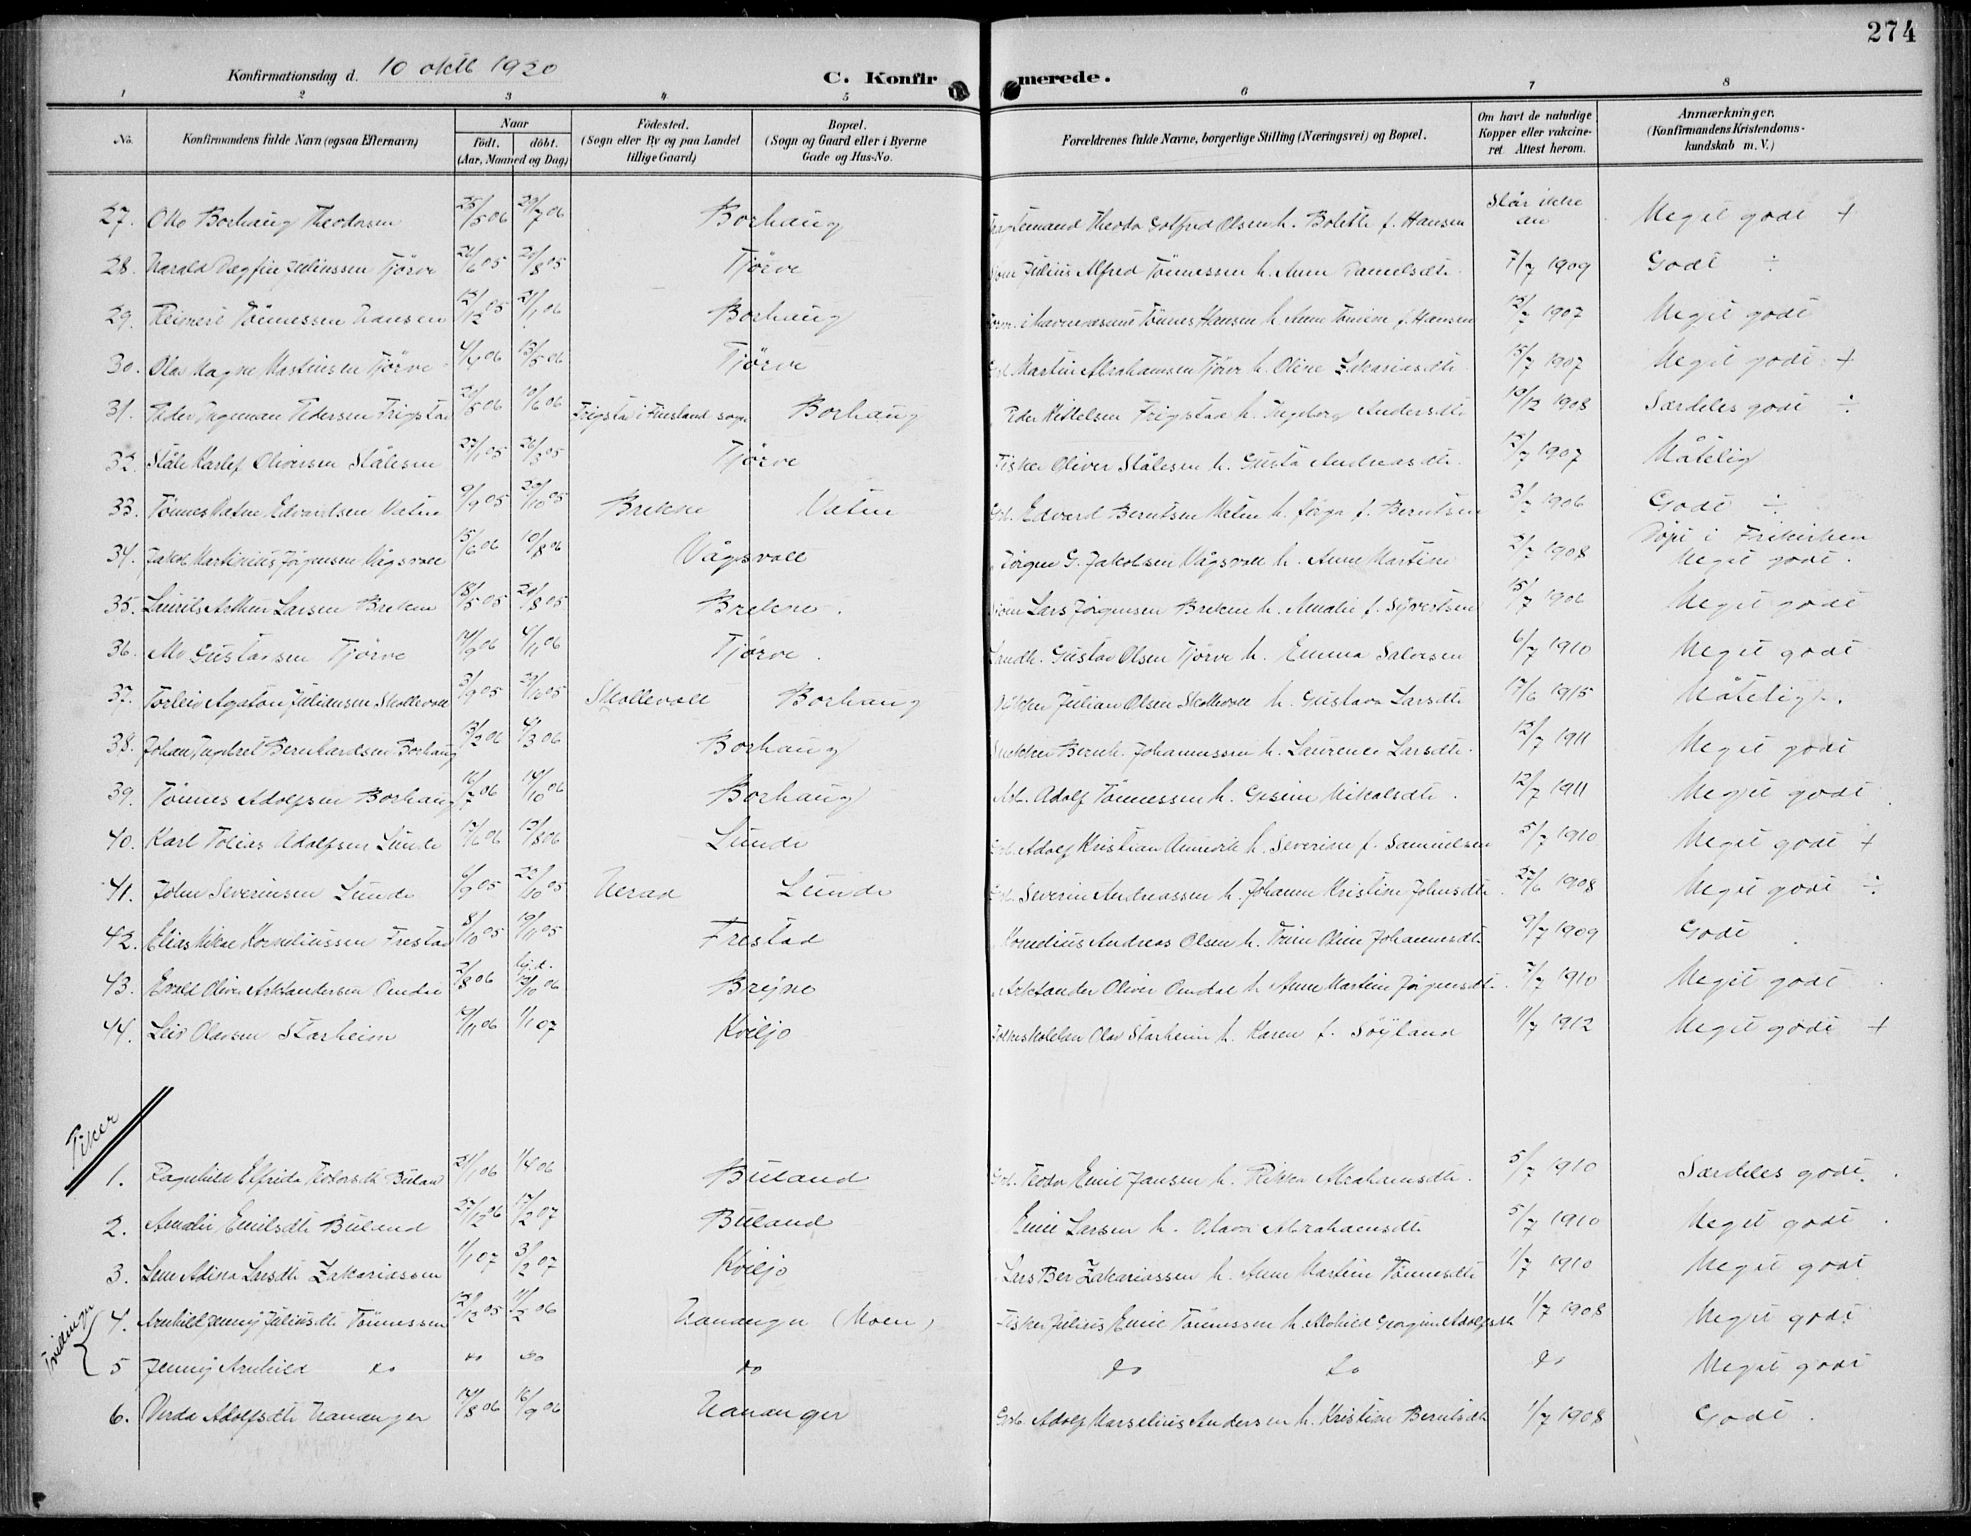 274
Konfirmationsdag d. 10 oktb 1920 C. Konfirmerede.
1 2 3 4 5 6 7 8
No. Konfirmandens fulde Navn (ogsaa Efternavn) Naar født. døbt. (Aar, Maaned og Dag) Fødested. (Sogn eller By og paa Landet tillige Gaard) Bopæl. (Sogn og Gaard eller i Byerne Gade og Hus-No. Forældrenes fulde Navne, borgerlige Stilling (Næringsvei) og Bopæl. Om havt de naturlige Kopper eller vakcineret Attest herom. Anmærkninger. (Konfirmandens Kristendomskundskab m. V.)
27. Otto Borhaug Theodorsen 25/5 06 29/7 06 Borhaug Theodor Gotfred Olsen h. Bolette f. Hansen Slår ikke an Meget godt +
28. Harald Dagfin Juliussen Tjörve 26/6 05 20/8 05 Tjörve Julius Alfred Tönnessen h. Anne Danielsdtr. 7/7 1909 Godt ÷
29. Reinert Tönnessen Hansen 12/12 05 21/1 06 Borhaug Tönnes Hansen h. Anne Tomine f. Hansen 12/7 1907 Meget godt
30. Olav Magne Martinsen Tjörve 4/4 06 13/5 06 Tjörve Martin Abrahamsen Tjörve h. Oline Zakariasdtr. 15/7 1907 Meget godt +
31. Peder Ingeman Pedersen Frigstad 20/5 06 10/6 06 Frigstad i Finsland sogn Borhaug Peder Kittelsen Frigstad h. Ingeborg Andersdtr 10/12 1908 Særdeles godt ÷
32. Ståle Karlef Oliversen Stålesen 27/1 05 26/3 05 Tjörve Fisker Oliver Stålesen h. Gusta Andreasdtr. 12/7 1907 Måtelig
33. Tönnes Vatne Edvardsen Vatne 9/9 05 29/10 05 Brekne Vatne Edvard Berntsen Vatne h. Jørga f. Berntsen 3/7 1906 Godt ÷
34. Jakob Martinius Jørgensen Vågsvoll 15/6 06 10/8 06 Vågsvoll Jørgen G. Jakobsen Vågsvoll h. Anne Martine 2/7 1908 Döpt i Frikirken Meget godt.
35. Laurits Arthur Larsen Brekne 18/5 05 20/8 05 Brekne. Lars Jørgensen Brekne h. Amalie f. Syvertsen 15/7 1906 Meget godt
36. Gustavsen Tjörve 14/9 06 4/11 06 Tjörve. Landh. Gustav Olsen Tjörve h. Emma Salvesen 6/7 1910 Meget godt
37. Torleiv Agaton Juliansen Skollevoll 3/9 05 Skollevoll Borhaug Julian Olsen Skollevoll h. Gustava Larsdtr 17/6 1915 Måtelig.
38. Johan Ingebret Bernhardsen Borhaug 3/2 06 4/3 06 Borhaug Snekker Bernh. Johannessen h. Laurence Larsdtr. 12/7 1911 Meget godt
39. Tönnes Adolfsen Borhaug 16/7 06 14/10 06 Borhaug Arb. Adolf Tönnessen h. Gesine Mikalsdtr. 12/7 1911 Meget godt
40. Karl Tobias Adolfsen Lunde 17/6 06 12/8 06 Lunde Adolf Kristian h. Severine f. Samuelsen 5/7 1910 Meget godt +
41. John Severinsen Lunde 6/9 05 22/10 05 Nesad Lunde Severin Andreassen h. Johanne Kristine Johnsdtr. 27/6 1908 Meget godt ÷
42. Elias Mikal Korneliussen Frestad 8/10 05 19/11 05 Frestad Kornelius Andreas Olsen h. Trine Oline Johannesdtr. 9/7 1909 Godt
43. Evald Oliver Asktandersen Omdal 2/8 06 hj.d. 12/10 06 Bryne Asklander Oliver Omdal h. Anne Martine Jörgensdtr. 7/7 1910 Meget godt
44. Leiv Olavsen Starheim 19/11 06 1/1 07 Kviljo Olav Starheim h. Karen f. Söyland 11/7 1912 Meget godt +
Piker
1. Ragnhild Elfrida Teodorsdtr Buland 21/1 06 1/4 06 Buland Teodor Emil Jansen h. Rikka Abrahamsdtr. 5/7 1910 Særdeles godt.
2. Amalie Emilsdtr Buland 27/12 06 17/2 07 Buland Emil Larsen h. Olava Abrahamsdtr 5/7 1910 Meget godt
3. Lene Adina Larsdtr Zakariassen 1/1 07 3/2 07 Kviljo Lars Ber Zakariassen h. Anne Martine Tönnesdtr 1/7 1910 Meget godt
Tvillinger
4. Arnhild Jenny Juliusdtr Tönnessen 12/12 05 11/2 06 Nananger (Moen) Fisker Julius Emil Tönnessen h. Alvhild Georgine Adolfsdtr 1/7 1908 Meget godt
5 Jenny Arnhild do do do do do do do Meget godt
6. Verda Adolfsdtr Nananger 14/8 06 16/9 06 Nananger Grb. Adolf Marselius Andersen h. Kristine Berntsdtr 1/7 1908 Godt.